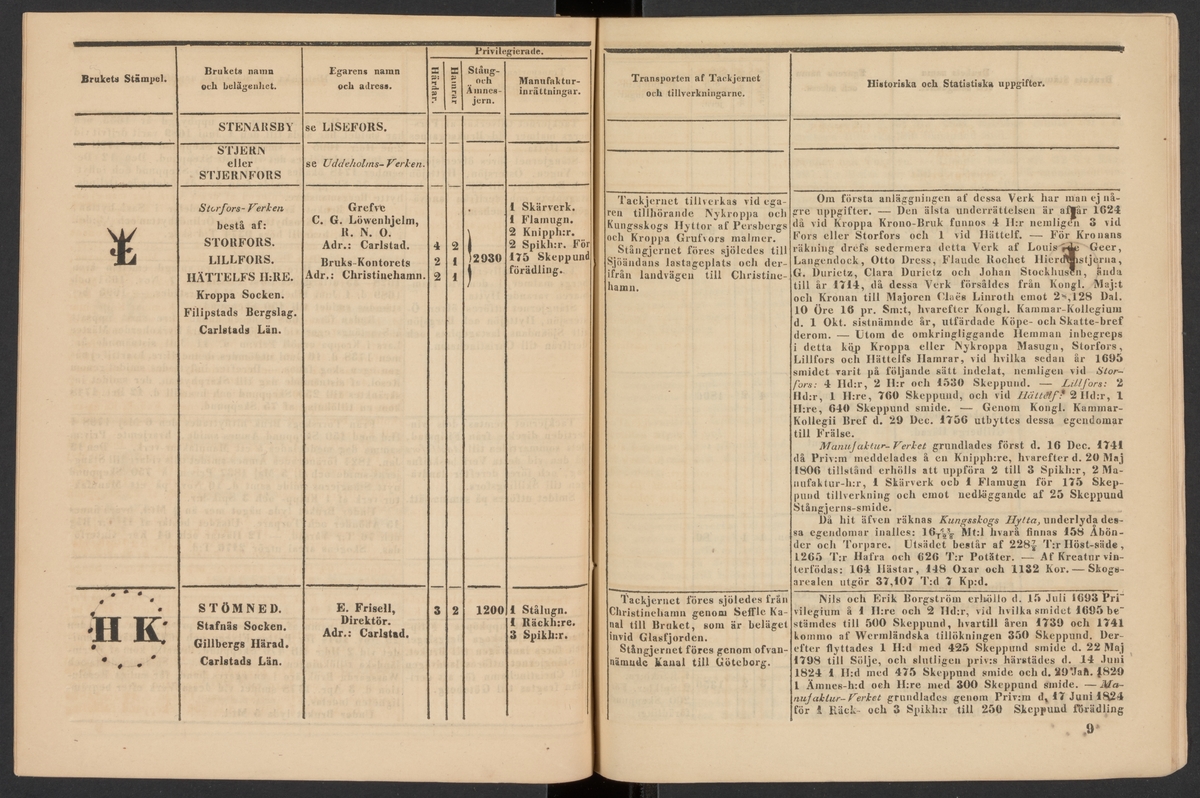 Privilegierade.
Brukets Stämpel.
Brukets namn
och belägenhet.
Egarens namn
och adress.
Härdar.
Hamrar
Stång-
och
Ämnes-
jern.
Manufaktur-
inrättningar.
Transporten af Tackjernet
och tillverkningarne.
Historiska och Statistiska uppgifter.
STENARSBY se LISEFORS.
STJERN
eller
STJERNFORS
se Uddeholms-Verken.
Storfors-Verken
bestå af:
STORFORS.
LILLFORS.
HÄTTELFS H:RE.
Kroppa Socken.
Filipstads Bergslag.
Carlstads Län.
Grefve
C. G. Löwenhjelm,
R. N. O.
Adr.: Carlstad.
Bruks-Kontorets
Adr.: Christinehamn.
4 2
2 1
2 1
2930
1 Skärverk.
1 Flamugn.
2 Knipph:r.
2 Spikh:r. För
175 Skeppund
förädling.
Tackjernet tillverkas vid ega-
ren tillhörande Nykroppa och
Kungsskogs Hyttor af Persbergs
och Kroppa Grufvors malmer.
Stångjernet föres sjöledes till
Sjöändans lastageplats och der-
ifrån landvägen till Christine-
hamn.
Om första anläggningen af dessa Verk har man ej nå-
gre uppgifter. — Den älsta underrättelsen är af år 1624
då vid Kroppa Krono-Bruk funnos 4 H:r nemligen 3 vid
Fors eller Storfors och 1 vid Hättelf. — För Kronans
räkning drefs sedermera detta Verk af Louis Geer,
Langendock, Otto Dress, Flaude Rochet Hierdhstjerna,
G. Durietz, Clara Durietz och Johan Stockhusen, ända
till år 1714, då dessa Verk försåldes från Kongl. Maj:t
och Kronan till Majoren Claës Linroth emot 28,128 Dal.
10 Öre 16 pr. Sm:t, hvarefter Kongl. Kammar-Kollegium
d. 1 Okt. sistnämnde år, utfärdade Köpe- och Skatte-bref
derom. — Utom de omkringliggande Hemman inbegreps
i detta köp Kroppa eller Nykroppa Masugn, Storfors,
Lillfors och Hättelfs Hamrar, vid hvilka sedan år 1695
smidet varit på följande sätt indelat, nemligen vid Stor-
fors: 4 Hd:r, 2 H:r och 1530 Skeppund. — Lillfors: 2
Hd:r, 1 H:re, 760 Skeppund, och vid Hättelf: 2 Hd:r, 1
H:re, 640 Skeppund smide. — Genom Kongl. Kammar-
Kollegii Bref d. 29 Dec. 1756 utbyttes dessa egendomar
till Frälse.
Manufaktur-Verket grundlades först d. 16 Dec. 1741
då Priv:m meddelades å en Knipph:re, hvarefter d. 20 Maj
1806 tillstånd erhölls att uppföra 2 till 3 Spikh:r, 2 Ma-
nufaktur-h:r, 1 Skärverk och 1 Flamugn för 175 Skep-
pund tillverkning och emot nedläggande af 25 Skeppund
Stångjerns-smide.
Då hit äfven räknas Kungsskogs Hytta, underlyda des-
sa egendomar inalles: 16 Mt:l hvarå finnas 158 Åbön-
der och Torpare. Utsädet består af 228⅞ T:r Höst-säde,
1265 T:r Hafra och 626 T:r Potäter. — Af Kreatur vin-
terfödas: 164 Hästar, 148 Oxar och 1132 Kor. — Skogs-
arealen utgör 37,107 T:d 7 Kp:d.
H K
STÖMNED.
Stafnäs Socken.
Gillbergs Härad.
Carlstads Län.
E. Frisell,
Direktör.
Adr.: Carlstad.
3 2 1200
1 Stålugn.
1 Räckh:re.
3 Spikh:r.
Tackjernet föres sjöledes från
Christinehamn genom Seffle Ka-
nal till Bruket, som är beläget
invid Glasfjorden.
Stångjernet föres genom ofvan-
nämude Kanal till Göteborg.
Nils och Erik Borgström erhöllo d. 15 Juli 1693 Pri-
vilegium å 1 H:re och 2 Hd:r, vid hvilka smidet 1695 be-
stämdes till 500 Skeppund, hvartill åren 1739 och 1741
kommo af Wermländska tillökningen 350 Skeppund. Der-
efter flyttades 1 H:d med 425 Skeppund smide d. 22 Maj
1798 till Sölje, och slutligen priv:s härstädes d. 14 Juni
1824 1 H:d med 475 Skeppund smide och d. 29 Jan. 1829
1 Ämnes-h:d och H:re med 300 Skeppund smide. — Ma-
nufaktur-Verket grundlades genom Priv:m d. 17 Juni 1824
för 1 Räck- och 3 Spikh:r till 250 Skeppund förädling
9